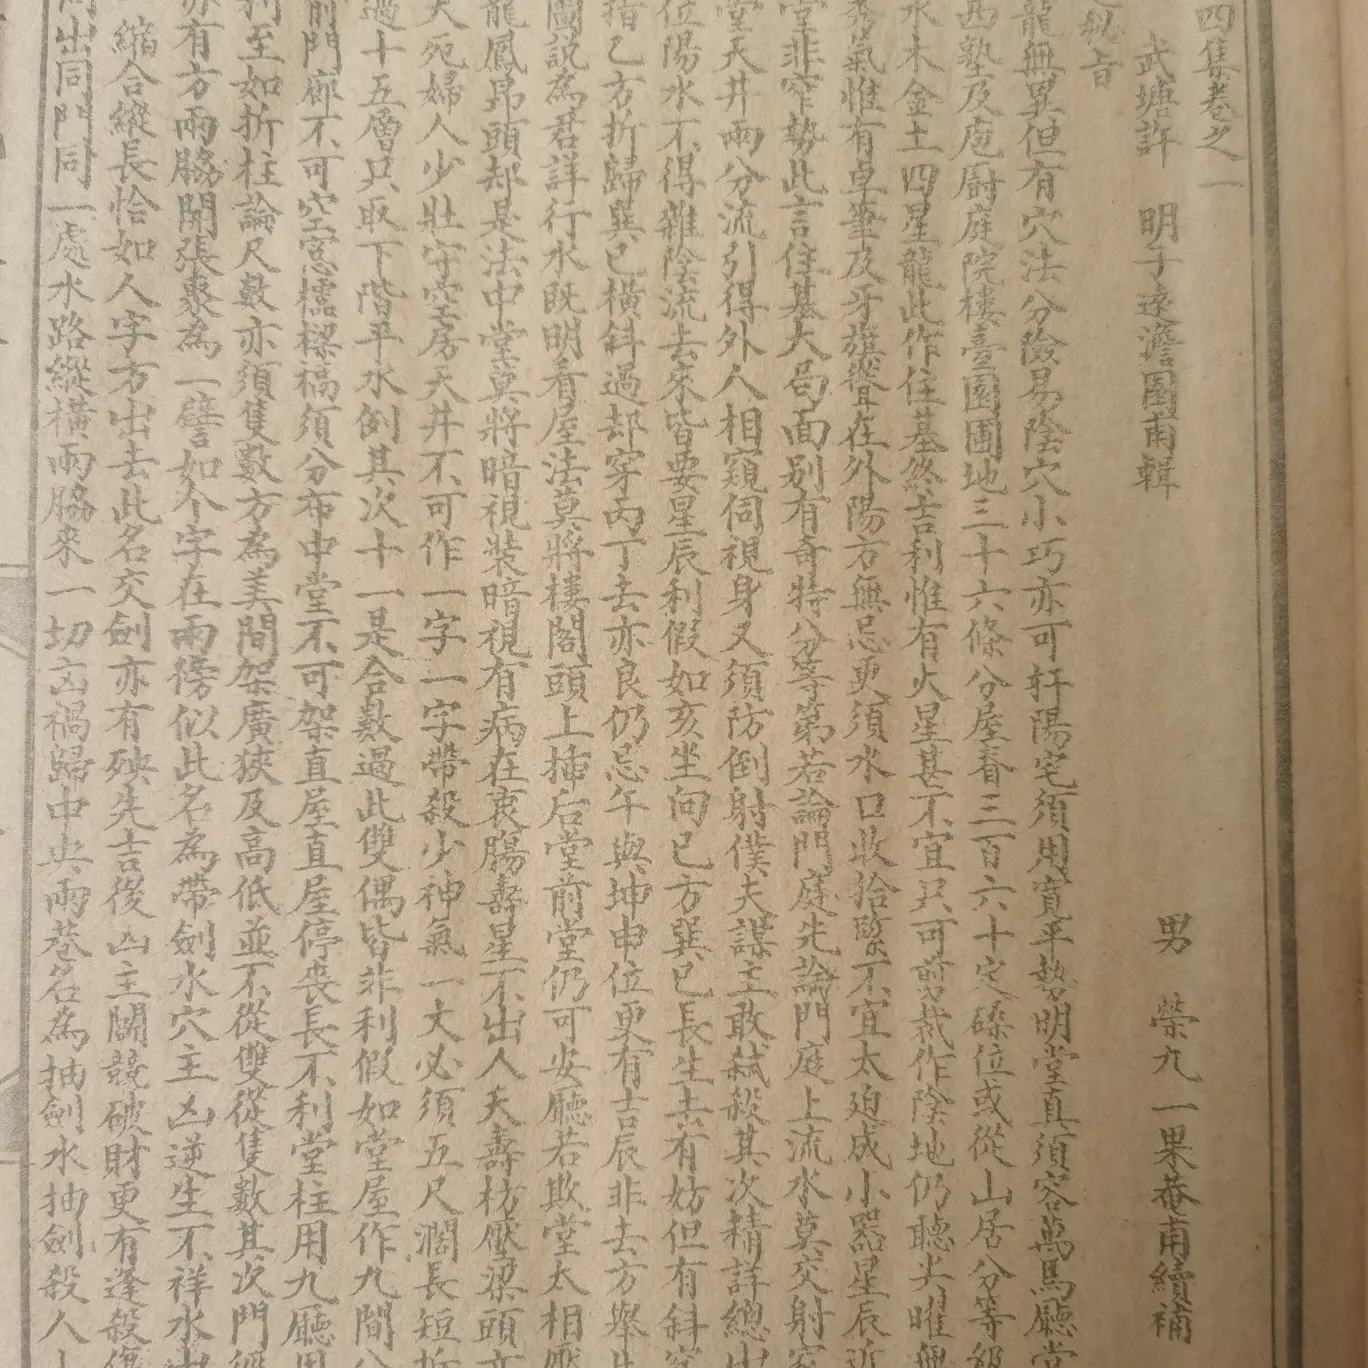 四集卷之一
武塘許 明子遠澹園甫輯 男 榮九一果菴甫續補
祕旨
龍無異但有穴法分險易陰穴小巧亦可軒陽宅須用寬平勢明堂直須容萬馬廳堂
西塾及庖廚庭院樓臺園圃地三十六條分屋舂三百六十定磉位或從山居分等級
水木金土四星龍此作住基終吉利惟有火星甚不宜只可剪裁作陰地仍聽尖曜無
秀氣惟有卓筆及牙旗聳在外陽方無忌更須水口收拾緊不宜太迫成小器星辰近
堂非窄勢此言住基大局面別有奇特分等第若論門庭先論門庭上流水莫交射
堂天井兩分流引得外人相窺伺視身又須防倒射僕夫謀主敢弒殺其次精詳總出
位陽水不得雜陰流去來皆要星辰利假如亥坐向巳方巽巳長生去有妨但有斜
指乙方折歸巽巳橫斜過却穿丙丁去亦良仍忌午與坤申位更有吉辰非去方舉
圖説為君詳行水既明看屋法莫將樓閣頭上插后堂前堂仍可安廳若欺堂太相壓
龍鳳昂頭却是法中堂莫將暗視裝暗視有病在衷腸壽星不出人夭壽枋壓梁頭
夭宛婦人少壯守空房天井不可作一字一字帶殺少神氣一丈必須五尺濶長短折
過十五層只取下階平水倒其次十一是合數過此雙偶皆非利假如堂屋作九間
前門廊不可空窓櫺槅須分布中堂不可架直屋直屋停喪長不利堂柱用九廳用
利至如折柱論尺數亦須隻數方為美間架廣狹及高低並不從雙從隻數其次門
亦有方兩脇開張褁為一譬如个字在兩傍似此名為帶劍水穴主凶逆生不祥水
縮合縱長恰如人字方出去此名交劍亦有殃先吉後凶主鬭競破財更有逢殺傷
同出同門同一處水路縱橫兩脇來一切凶禍歸中央兩巷名為抽劍水抽劍殺人